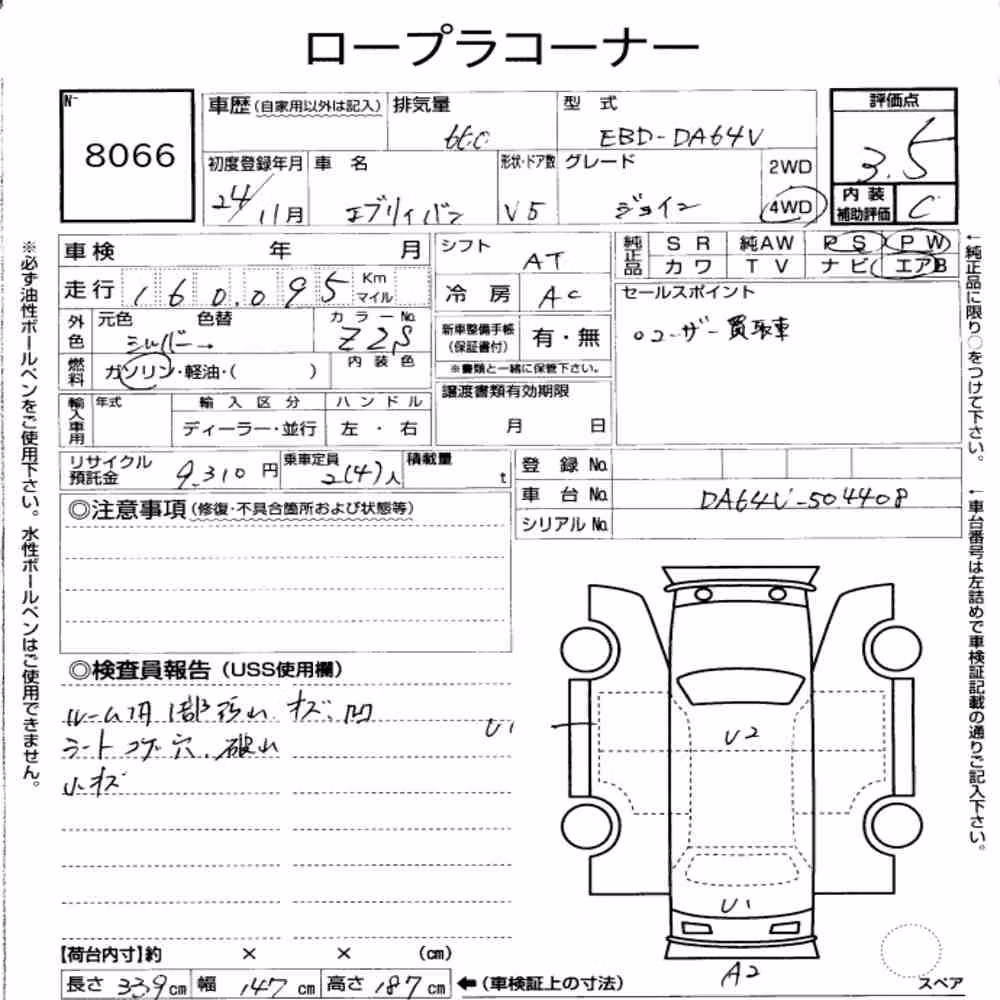 ロープラコーナー
No
8066
車歴(自家用以外は記入)
排気量
660
型 式
EBD-DA64V
評価点
3.5
初度登録年月
24/11月
車 名
エブリイバン
形状・ドア数
V5
グレード
ジョイン
2WD
4WD
内装
補助評価
C
車検 年 月
走行 160,095 Km
マイル
外色
元色 色替
シルバー→
カラーNo.
Z2S
燃料
ガソリン・軽油・( )
内装色
輸入車用
年式
輸入区分
ディーラー・並行
ハンドル
左・右
シフト
AT
冷房
AC
新車整備手帳
(保証書付)
有・無
※書類と一緒に保管下さい。
譲渡書類有効期限
月 日
純正品
SR 純AW PS PW
カワ TV ナビ エアB
セールスポイント
○ユーザー買取車
リサイクル
預託金
9,310円
乗車定員
2(4)人
積載量
t
登録No.
車台No. DA64V-504408
シリアルNo.
◎注意事項(修復・不具合箇所および状態等)
◎検査員報告(USS使用欄)
キズ、凹
シート コゲ穴、破れ
小キズ
U1
U2
U1
A2
【荷台内寸】約 × × (cm)
長さ 339cm 幅 147cm 高さ 187cm
←(車検証上の寸法)
スペア
※必ず油性ボールペンをご使用下さい。水性ボールペンはご使用できません。
←純正品に限り○をつけて下さい。
←車台番号は左詰めで車検証記載の通りご記入下さい。